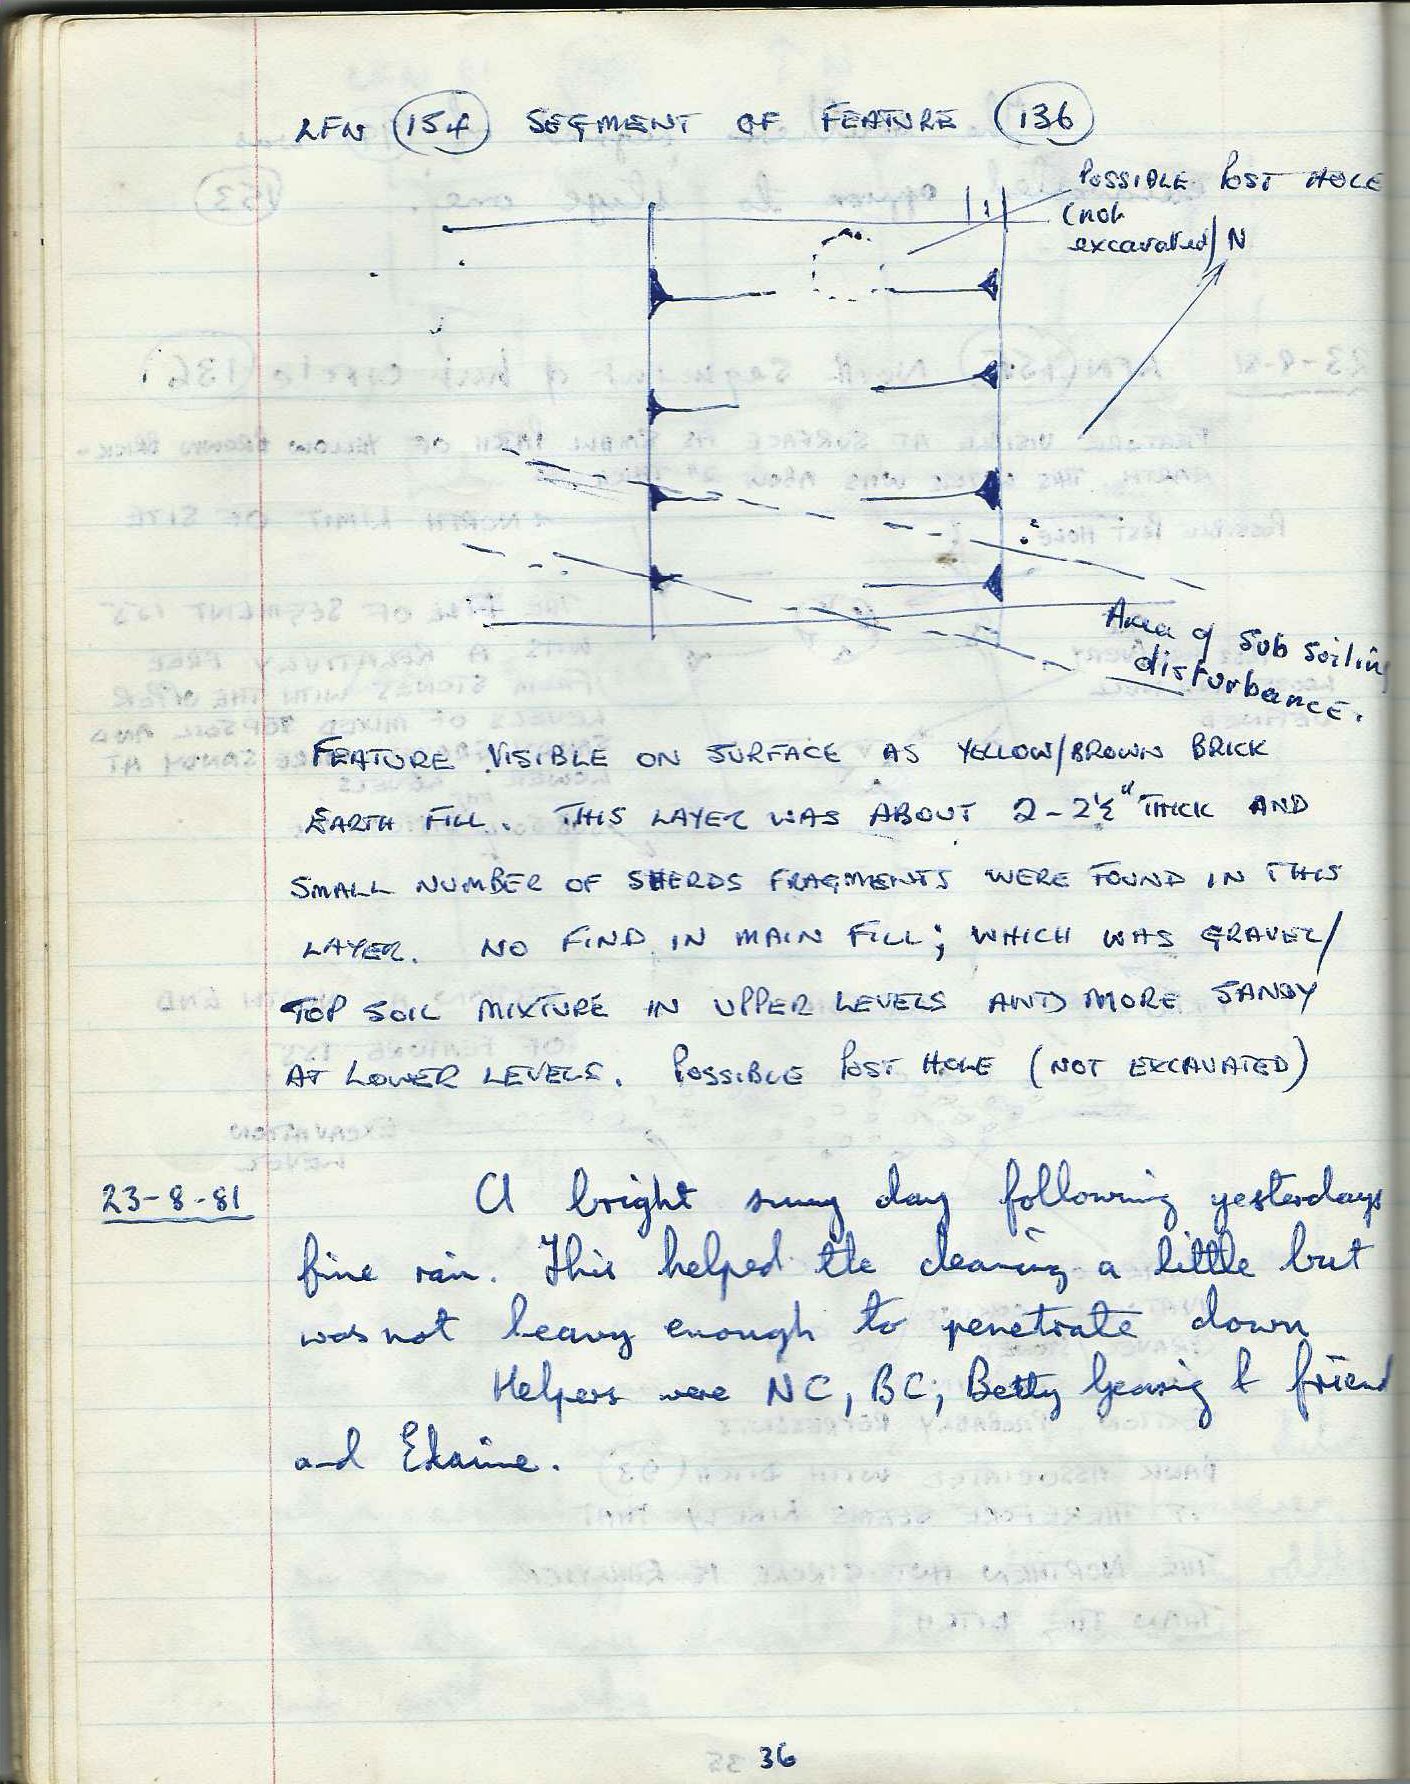 LFN (154) SEGMENT OF FEATURE (136)
POSSIBLE POST HOLE
(not
excavated) N
Area of sub soiling
disturbance.
FEATURE VISIBLE ON SURFACE AS YELLOW/BROWN BRICK
EARTH FILL. THIS LAYER WAS ABOUT 2-2½" THICK AND
SMALL NUMBER OF SHERDS FRAGMENTS WERE FOUND IN THIS
LAYER. NO FIND IN MAIN FILL; WHICH WAS GRAVEL/
TOP SOIL MIXTURE IN UPPER LEVELS AND MORE SANDY
AT LOWER LEVELS. POSSIBLE POST HOLE (NOT EXCAVATED)
23-8-81 A bright sunny day following yesterdays
fine rain. This helped the cleaning a little but
was not heavy enough to penetrate down
Helpers were NC, BC, Betty & friend
and Elaine.
36